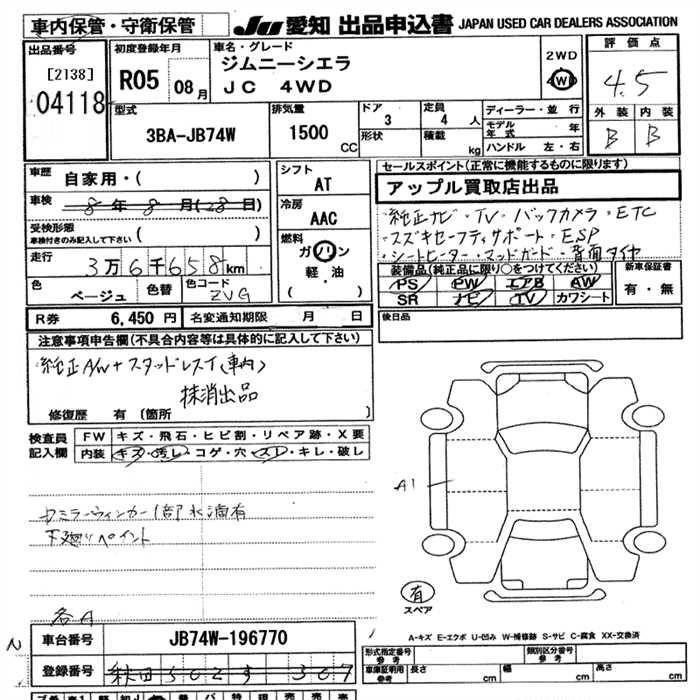 車内保管・守衛保管
JU 愛知 出品申込書 JAPAN USED CAR DEALERS ASSOCIATION
出品番号
[2138]
04118
初度登録年月
R05 08月
車名・グレード
ジムニーシエラ
JC 4WD
2WD
4WD
評価点
4.5
外装 内装
B B
型式
3BA-JB74W
排気量
1500 CC
ドア
3
形状
定員
4 人
積載
kg
ディーラー・並行
モデル年式 年
ハンドル 左・右
車歴
自家用・( )
車検
8年8月(28日)
受検形態
車検付きのみ記入して下さい ( )
走行
3万6千658km
色
ベージュ
色替
色コード
ZVG
シフト
AT
冷房
AAC
燃料
ガソリン
軽・油
( )
セールスポイント(正常に機能するものに限ります)
アップル買取店出品
・純正ナビ・TV・バックカメラ・ETC
・スズキセーフティサポート・ESP
・シートヒーター・マッドガード・背面タイヤ
装備品(純正品に限り○をつけてください)
PS PW エアB AW
SR ナビ TV カワシート
新車保証書
有・無
R券 6,450円 名変通知期限 月 日
後日品
注意事項申告欄(不具合内容等は具体的に記入して下さい)
純正A/W+スタッドレスT(車内)
抹消出品
修復歴 有(箇所 )
検査員記入欄
FW キズ・飛石・ヒビ割・リペア跡・X要
内装 キズ・汚レ・コゲ・穴・スレ・キレ・破し
左ミラーウィンカー1部水滴有
下廻りペイント
各A
A1
有
スペア
A-キズ E-エクボ U-凹み W-補修跡 S-サビ C-腐食 XX-交換済
N
車台番号 JB74W-196770
登録番号 秋田 502 す 307
形式指定番号
参考
類別区分番号
参考
車庫証明用
参考
長さ cm 幅 cm 高さ cm